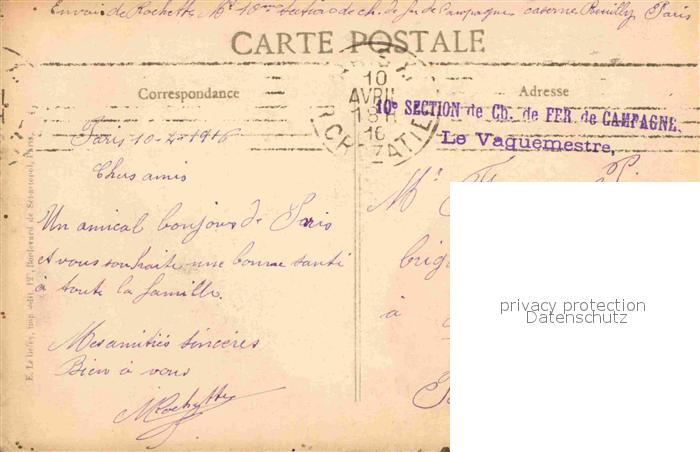 Envoi de Rochette M. 10me section de ch. de fer de Campagne caserne Reuilly Paris
CARTE POSTALE
Correspondance
Adresse
10
AVRIL
16
10e SECTION de Ch. de FER de CAMPAGNE.
Le Vaguemestre,
Paris 10-4-1916
Chers amis
Un amical bonjour de Paris
et vous souhaite une bonne santé
à toute la famille.
Mes amitiés sincères
Bien à vous
MRochette
Mr
brig
à
E. Le Deley, imp.-édit., 127, Boulevard de Sébastopol, Paris.
privacy protection
Datenschutz